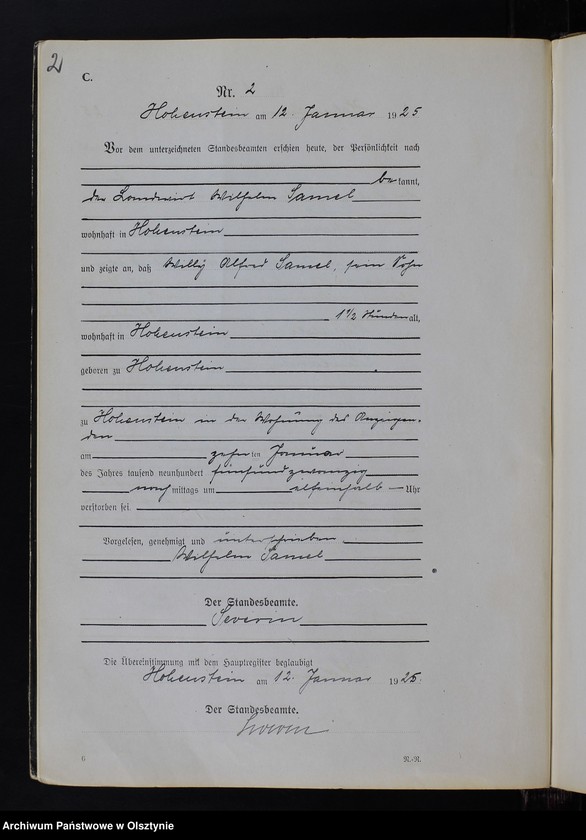 2
C.
Nr. 2
Hohenstein am 12. Januar 1925
Vor dem unterzeichneten Standesbeamten erschien heute, der Persönlichkeit nach
bekannt,
der Landwirt Wilhelm Samel
wohnhaft in Hohenstein
und zeigte an, daß Willy Alfred Samel, sein Sohn
1 1/2 Stunden alt,
wohnhaft in Hohenstein
geboren zu Hohenstein
zu Hohenstein in der Wohnung des Anzeigen-
den
am zehnten Januar
des Jahres tausend neunhundert fünfundzwanzig
nachmittags um elfeinhalb Uhr
verstorben sei.
Vorgelesen, genehmigt und unterschrieben
Wilhelm Samel
Der Standesbeamte.
Severin
Die Übereinstimmung mit dem Hauptregister beglaubigt
Hohenstein am 12. Januar 1925.
Der Standesbeamte.
Severin
6
Archiwum Państwowe w Olsztynie